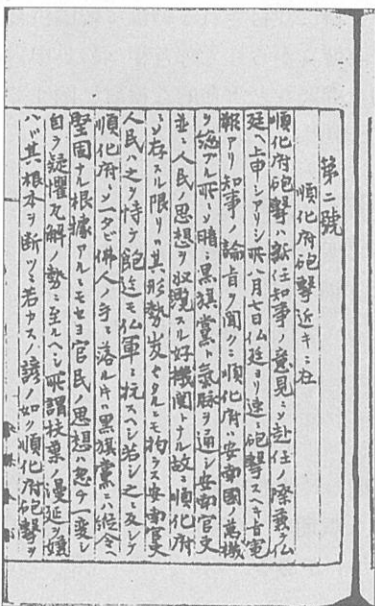 第二號
順化府砲撃近キニ在
順化府砲撃ハ新任知事ノ意見ニシ赴任ノ際兼テ仏
廷ヘ上申シアリシ所八月七日仏廷ヨリ速ニ砲撃スヘキ旨電
報アリ知事ノ論旨ヲ聞クニ順化府ハ安南國ノ萬機
ヲ総ブル所ニシ暗ニ黒旗黨ト氣脉ヲ通シ安南官吏
並ニ人民ノ思想ヲ収攬スル好機関ナル故ニ順化府
ニシ存スル限リハ其形勢ノ拘ラス安南官吏
人民ハ之ヲ恃テ飽迄モ仏軍ニ抗スヘシ若シ之ニ反シテ
順化府ニシ一タビ佛人ノ手ニ落ル片ハ黒旗黨ニハ縦令ヘ
堅固ナル根據アルニモセヨ官民ノ思想ハ忽チ一変シ
自ラ疑懼瓦解ノ勢ニ至ルヘシ所謂枝葉ノ蔓延ヲ
ハ其根本ヲ断ツニ若カスノ諺ノ如ク順化府砲撃ヲ